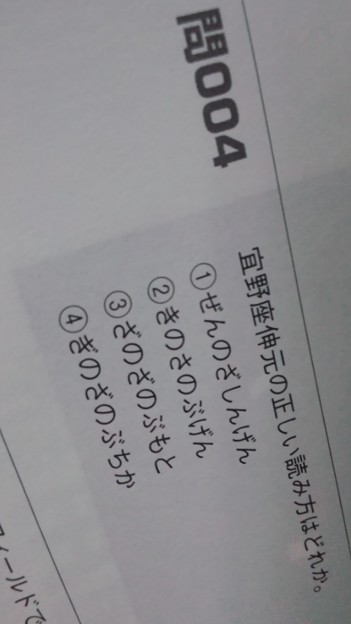 問004
宜野座伸元の正しい読み方はどれか。
①ぜんのざしんげん
②きのさのぶげん
③ざのざのぶもと
④ぎのざのぶちか
ィールドで